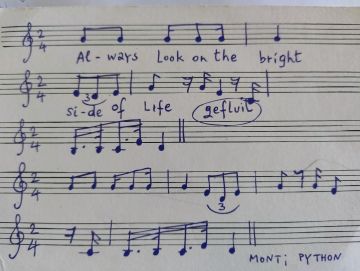 2
4
Al-ways Look on the bright
2
4
3
si-de of Life gefluit
2
4
2
4
3
2
4
MONTi PYTHON